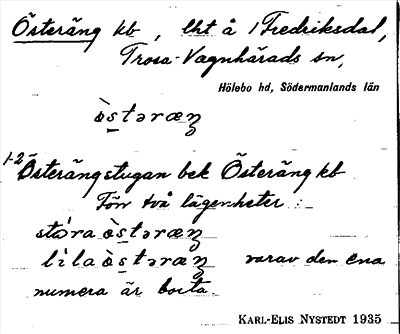 Österäng kb, lht å 1 Fredriksdal,
Trosa-Vagnhärads sn,
Hölebo hd, Södermanlands län
ò̀s̲təræŋ
1-2 Österängstugan bek Österäng kb
Fön två lägenheter:
stóra ò̀s̲təræŋ
lìla ò̀s̲təræŋ varav den ena
numera är borta.
KARL-ELIS NYSTEDT 1935